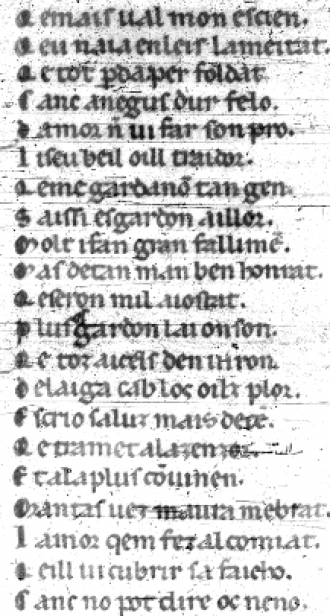 Q emais ual mon escien.
Q eu naia enleis lameitat.
Q e tot p̄da per foldat
C anc anegus dur felo.
D amor ñ ui far son pro.
L iseu beil oill traidor.
Q eme gardauō tan gen.
S aissi esgardon aillor.
M olt ifan gran fallimē.
M as detan man ben honrat.
Q eseron mil aiostat.
P lus gardon lai on son.
Q e toz aicels den uiron
D elaiga cab los oilz plor.
E scrio saluz mais decē.
Q e tramet ala zenzor
E t ala plus cōuinen.
M antas uez maura mebrat.
L amor qem fez al comiat.
Q eill ui cubrir sa faicho.
C anc no pot dire oc neno.